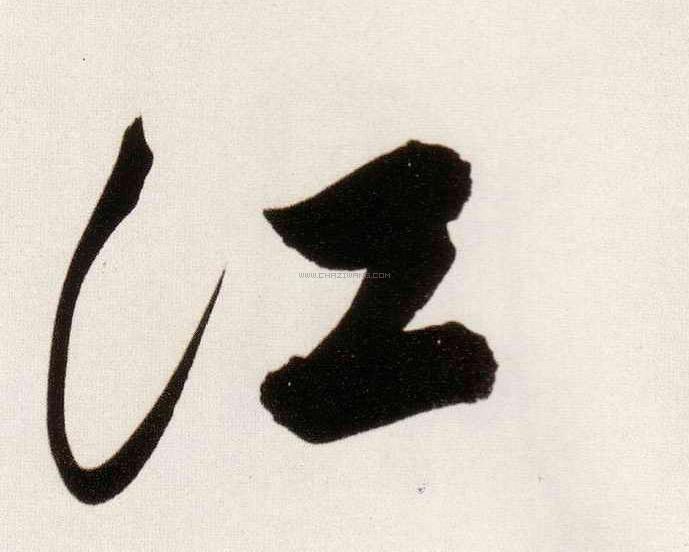 江
WWW.CHAZIWANG.COM